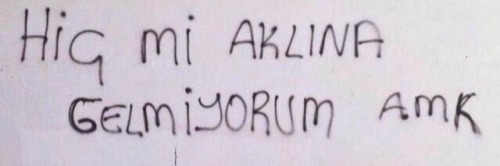 HiG mi AKLINA
GELMiYORUM AMK